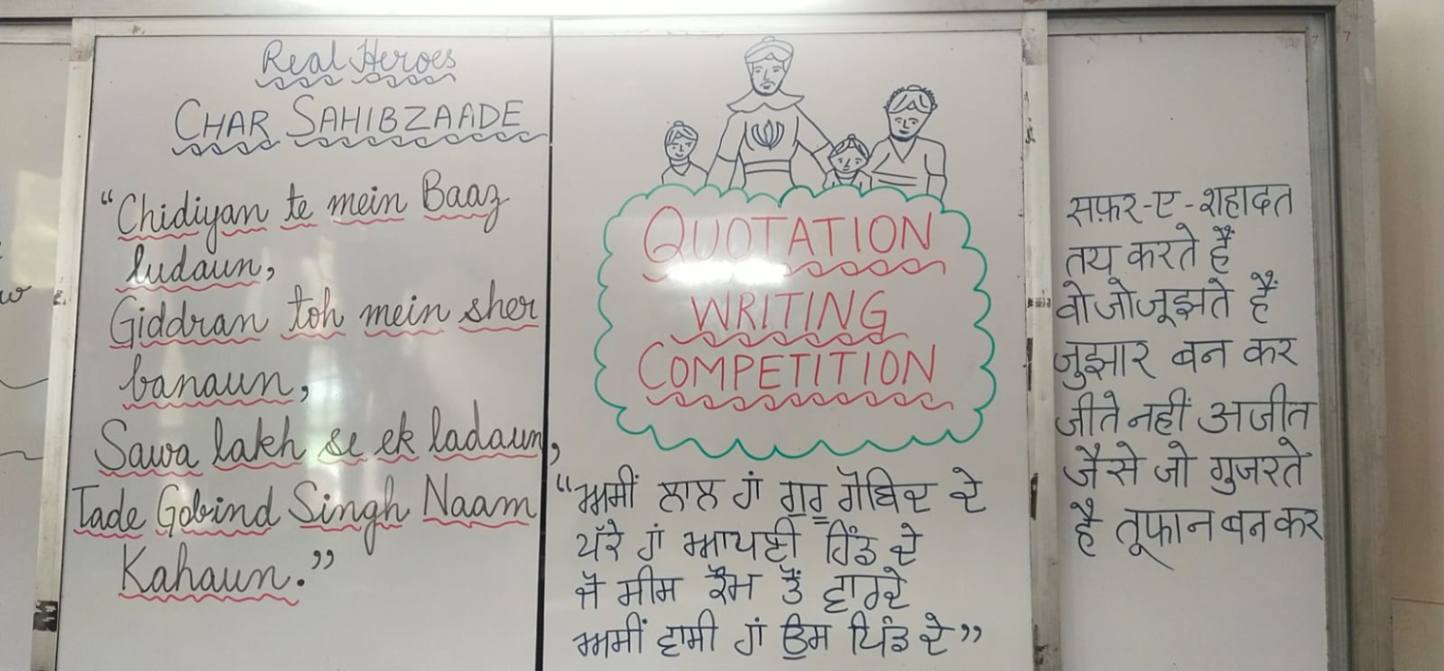 Real Heroes
CHAR SAHIBZAADE
"Chidiyan te mein Baaz
ludaun,
Giddran toh mein sher
banaun,
Sawa lakh se ek ladaun,
Tade Gobind Singh Naam
Kahaun."
QUOTATION
WRITING
COMPETITION
"ਅਸੀਂ ਲਾਲ ਹਾਂ ਗੁਰੂ ਗੋਬਿੰਦ ਦੇ
ਪੱਕੇ ਹਾਂ ਆਪਣੀ ਹਿੰਡ ਦੇ
ਜੋ ਸੀਸ ਕੌਮ ਤੋਂ ਵਾਰਦੇ
ਅਸੀਂ ਵਾਸੀ ਹਾਂ ਉਸ ਪਿੰਡ ਦੇ"
सफ़र-ए-शहादत
तय करते हैं
वो जो जूझते हैं
जुझार बन कर
जीते नहीं अजीत
जैसे जो गुजरते
है तूफान बन कर